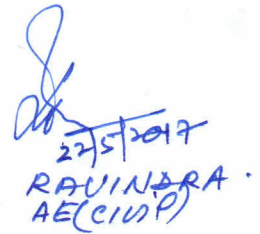 22/5/2017
RAVINDRA.
AE(CIVIP)